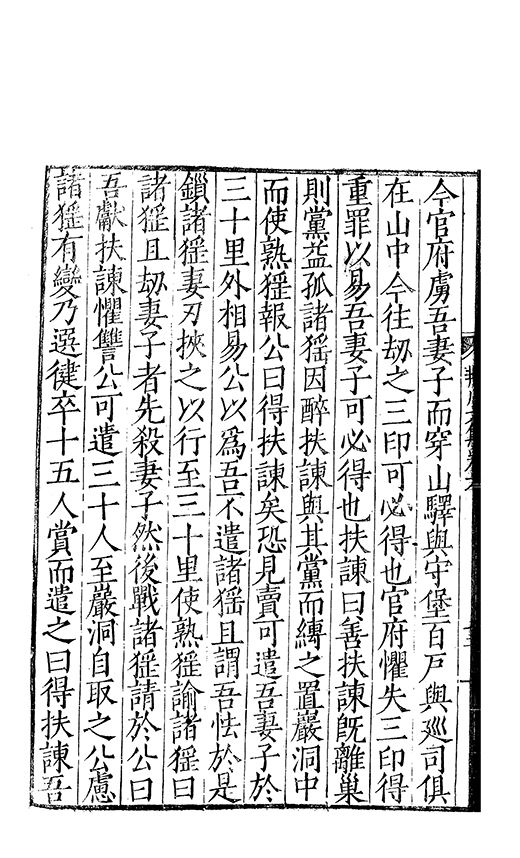 今官府虜吾妻子而穿山驛與守堡百戶與廵司俱
在山中今往刼之三印可必得也官府懼失三印得
重罪以易吾妻子可必得也扶諫曰善扶諫既離巢
則黨益孤諸猺因醉扶諫與其黨而縛之置巖洞中
而使熟猺報公曰得扶諫矣恐見賣可遣吾妻子於
三十里外相易公以為吾不遣諸猺且謂吾怯於是
鎖諸猺妻刃挾之以行至三十里使熟猺諭諸猺曰
諸猺且刼妻子者先殺妻子然後戰諸猺請於公曰
吾獻扶諫懼讐公可遣三十人至巖洞自取之公慮
諸猺有變乃選健卒十五人賞而遣之曰得扶諫吾